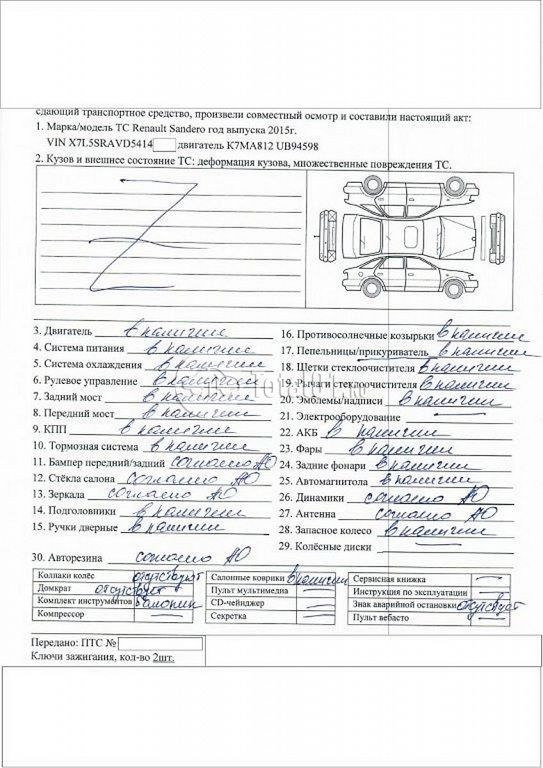 сдающий транспортное средство, произвели совместный осмотр и составили настоящий акт:
1. Марка/модель ТС Renault Sandero год выпуска 2015г.
VIN X7L5SRAVD5414 двигатель K7MA812 UB94598
2. Кузов и внешнее состояние ТС: деформация кузова, множественные повреждения ТС.
3. Двигатель в наличии
4. Система питания в наличии
5. Система охлаждения в наличии
6. Рулевое управление в наличии
7. Задний мост в наличии
8. Передний мост в наличии
9. КПП в наличии
10. Тормозная система в наличии
11. Бампер передний/задний согласно АО
12. Стёкла салона согласно АО
13. Зеркала согласно АО
14. Подголовники в наличии
15. Ручки дверные в наличии
16. Противосолнечные козырьки в наличии
17. Пепельницы/прикуриватель в наличии
18. Щетки стеклоочистителя в наличии
19. Рычаги стеклоочистителя в наличии
20. Эмблемы/надписи в наличии
21. Электрооборудование —
22. АКБ в наличии
23. Фары в наличии
24. Задние фонари в наличии
25. Автомагнитола в наличии
26. Динамики согласно АО
27. Антенна согласно АО
28. Запасное колесо в наличии
29. Колёсные диски —
30. Авторезина согласно АО
Колпаки колёс отсутствуют
Домкрат отсутствует
Комплект инструментов балонник
Компрессор —
Салонные коврики в наличии
Пульт мультимедиа —
CD-чейнджер —
Секретка —
Сервисная книжка —
Инструкция по эксплуатации —
Знак аварийной остановки отсутствует
Пульт вебасто —
Передано: ПТС №
Ключи зажигания, кол-во 2шт.